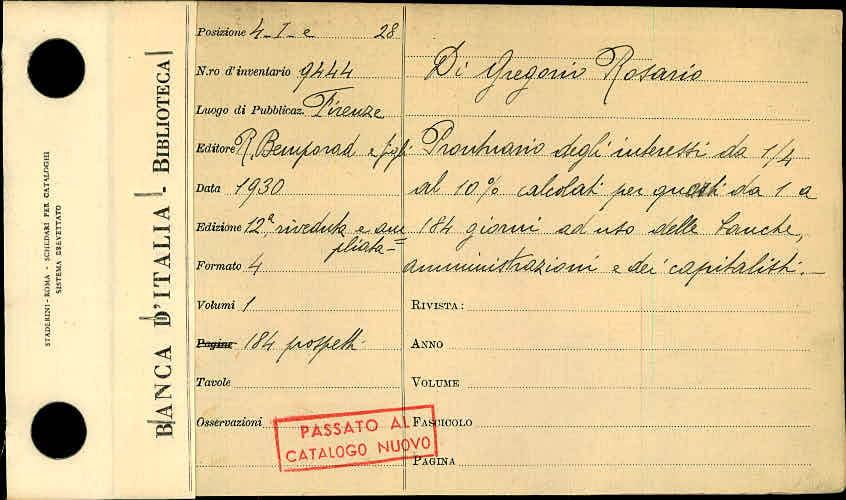 STADERINI - ROMA - SCHEDARI PER CATALOGHI
SISTEMA BREVETTATO
BANCA D'ITALIA - BIBLIOTECA
Posizione 4-I-e 28
N.ro d'inventario 9444
Luogo di Pubblicaz. Firenze
Editore R. Bemporad e figli
Data 1930
Edizione 12ª, riveduta e am
pliata=
Formato 4
Volumi 1
Pagine 184 prospetti
Tavole
Osservazioni
Di Gregorio Rosario
Prontuario degli interessi da 1/4
al 10% calcolati per quarti da 1 a
184 giorni ad uso delle banche,
amministrazioni e dei capitalisti.-
RIVISTA:
ANNO
VOLUME
FASCICOLO
PAGINA
PASSATO AL
CATALOGO NUOVO